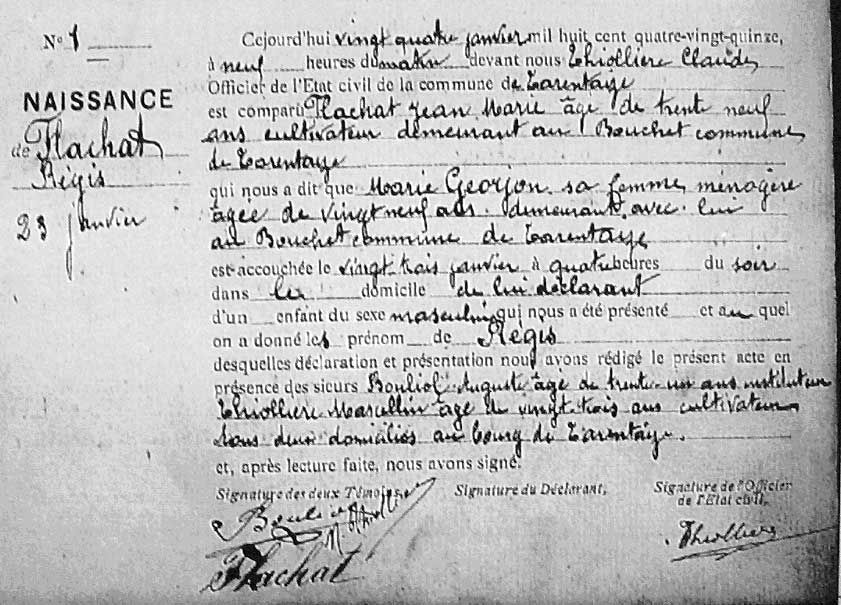 N° 1
NAISSANCE
de Flachat
Régis
23 janvier
Cejourd'hui vingt quatre janvier mil huit cent quatre-vingt-quinze,
à neuf heures du matin devant nous Thiollière Claude,
Officier de l'Etat civil de la commune de Tarentaize
est comparu Flachat Jean Marie âgé de trente neuf
ans cultivateur demeurant au Bouchet commune
de Tarentaize
qui nous a dit que Marie Georjon sa femme, ménagère
âgée de vingt neuf ans demeurant avec lui
au Bouchet commune de Tarentaize
est accouchée le vingt trois janvier à quatre heures du soir
dans le domicile de lui déclarant
d'un enfant du sexe masculin qui nous a été présenté et au quel
on a donné les prénom de Régis
desquelles déclaration et présentation nous avons rédigé le présent acte en
présence des sieurs Bouliol Auguste âgé de trente un ans instituteur
Thiollière Marcellin âgé de vingt trois ans cultivateur
tous deux domiciliés au bourg de Tarentaize.
et, après lecture faite, nous avons signé.
Signature des deux Témoins, Signature du Déclarant, Signature de l'Officier
de l'Etat civil,
Bouliol Thiollière
Flachat